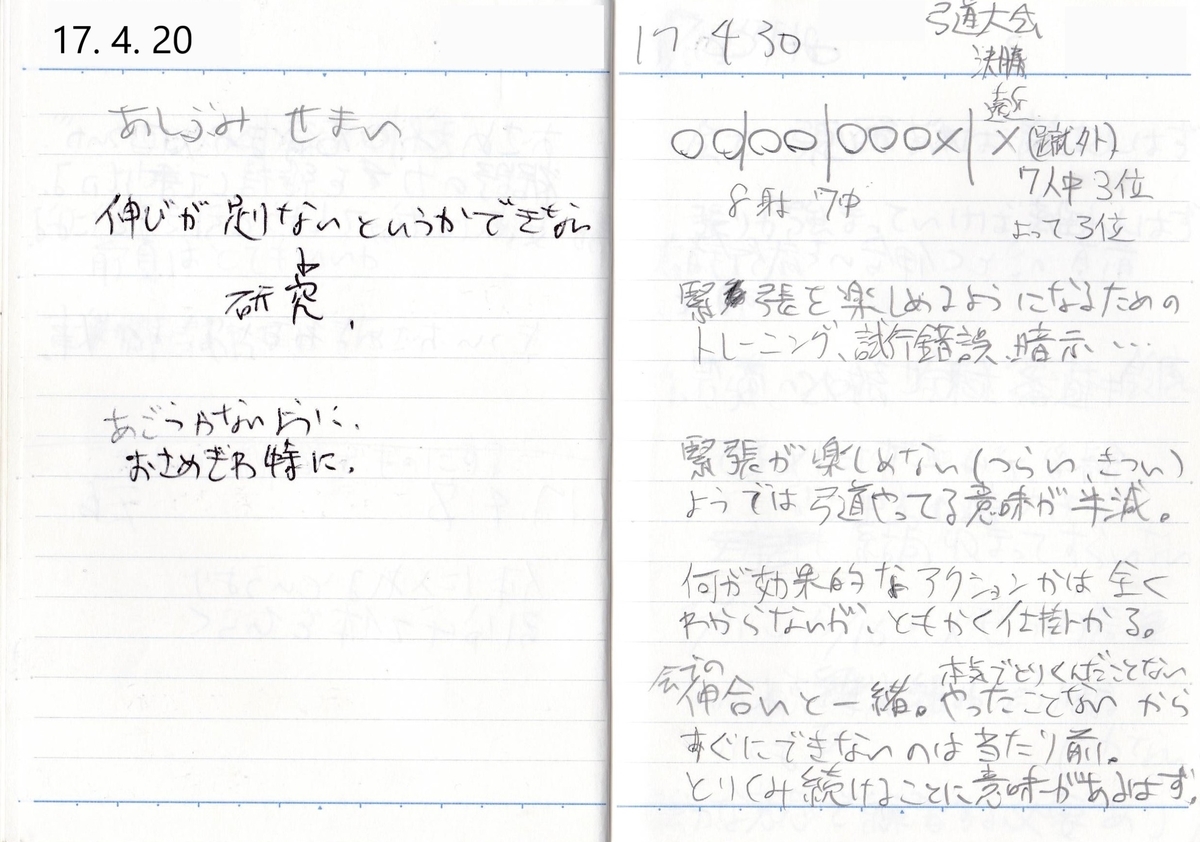 17. 4. 20
あしぶみ せまい
伸びが足りないというかできない
↓
研究.
あごつかないように.
おさめぎわ特に.
17 4 30
弓道大会
決勝
遠近
○○|○○|○○○×| × (蹴外)
8射 7中
7人中 3位
よって3位
緊張を楽しめるようになるための
トレーニング、試行錯誤、暗示…
緊張が楽しめない(つらい、きつい)
ようでは弓道やってる意味が半減。
何が効果的なアクションかは全く
わからないが、ともかく仕掛かる。
会での 本気でとりくんだことない
伸合いと一緒。やったことないから
すぐにできないのは当たり前。
とりくみ続けることに意味があるはず。